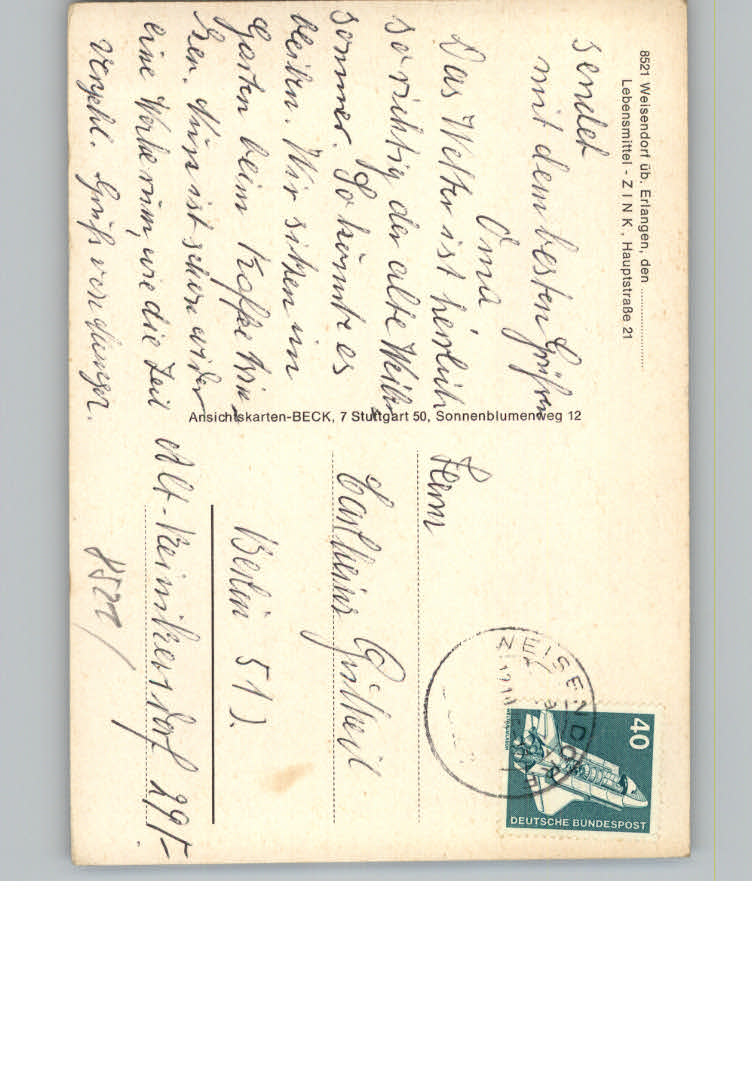 8521 Weisendorf üb. Erlangen, den
Lebensmittel - ZINK, Hauptstraße 21
sendet
mit dem besten Grüßen
Oma
Das Wetter ist herrlich
so richtig der alte Weiber
sommer. So könnte es
bleiben. Wir sitzen im
Garten beim Kaffee trin-
ken. Nun ist schon wider
eine Woche rum, wie die Zeit
vergeht. Gruß von
Ansichtskarten-BECK, 7 Stuttgart 50, Sonnenblumenweg 12
40
DEUTSCHE BUNDESPOST
WEISENDORF
Herrn
Carlheinz
Berlin 51).
Alt-Reinikendorf 29/-
8521/